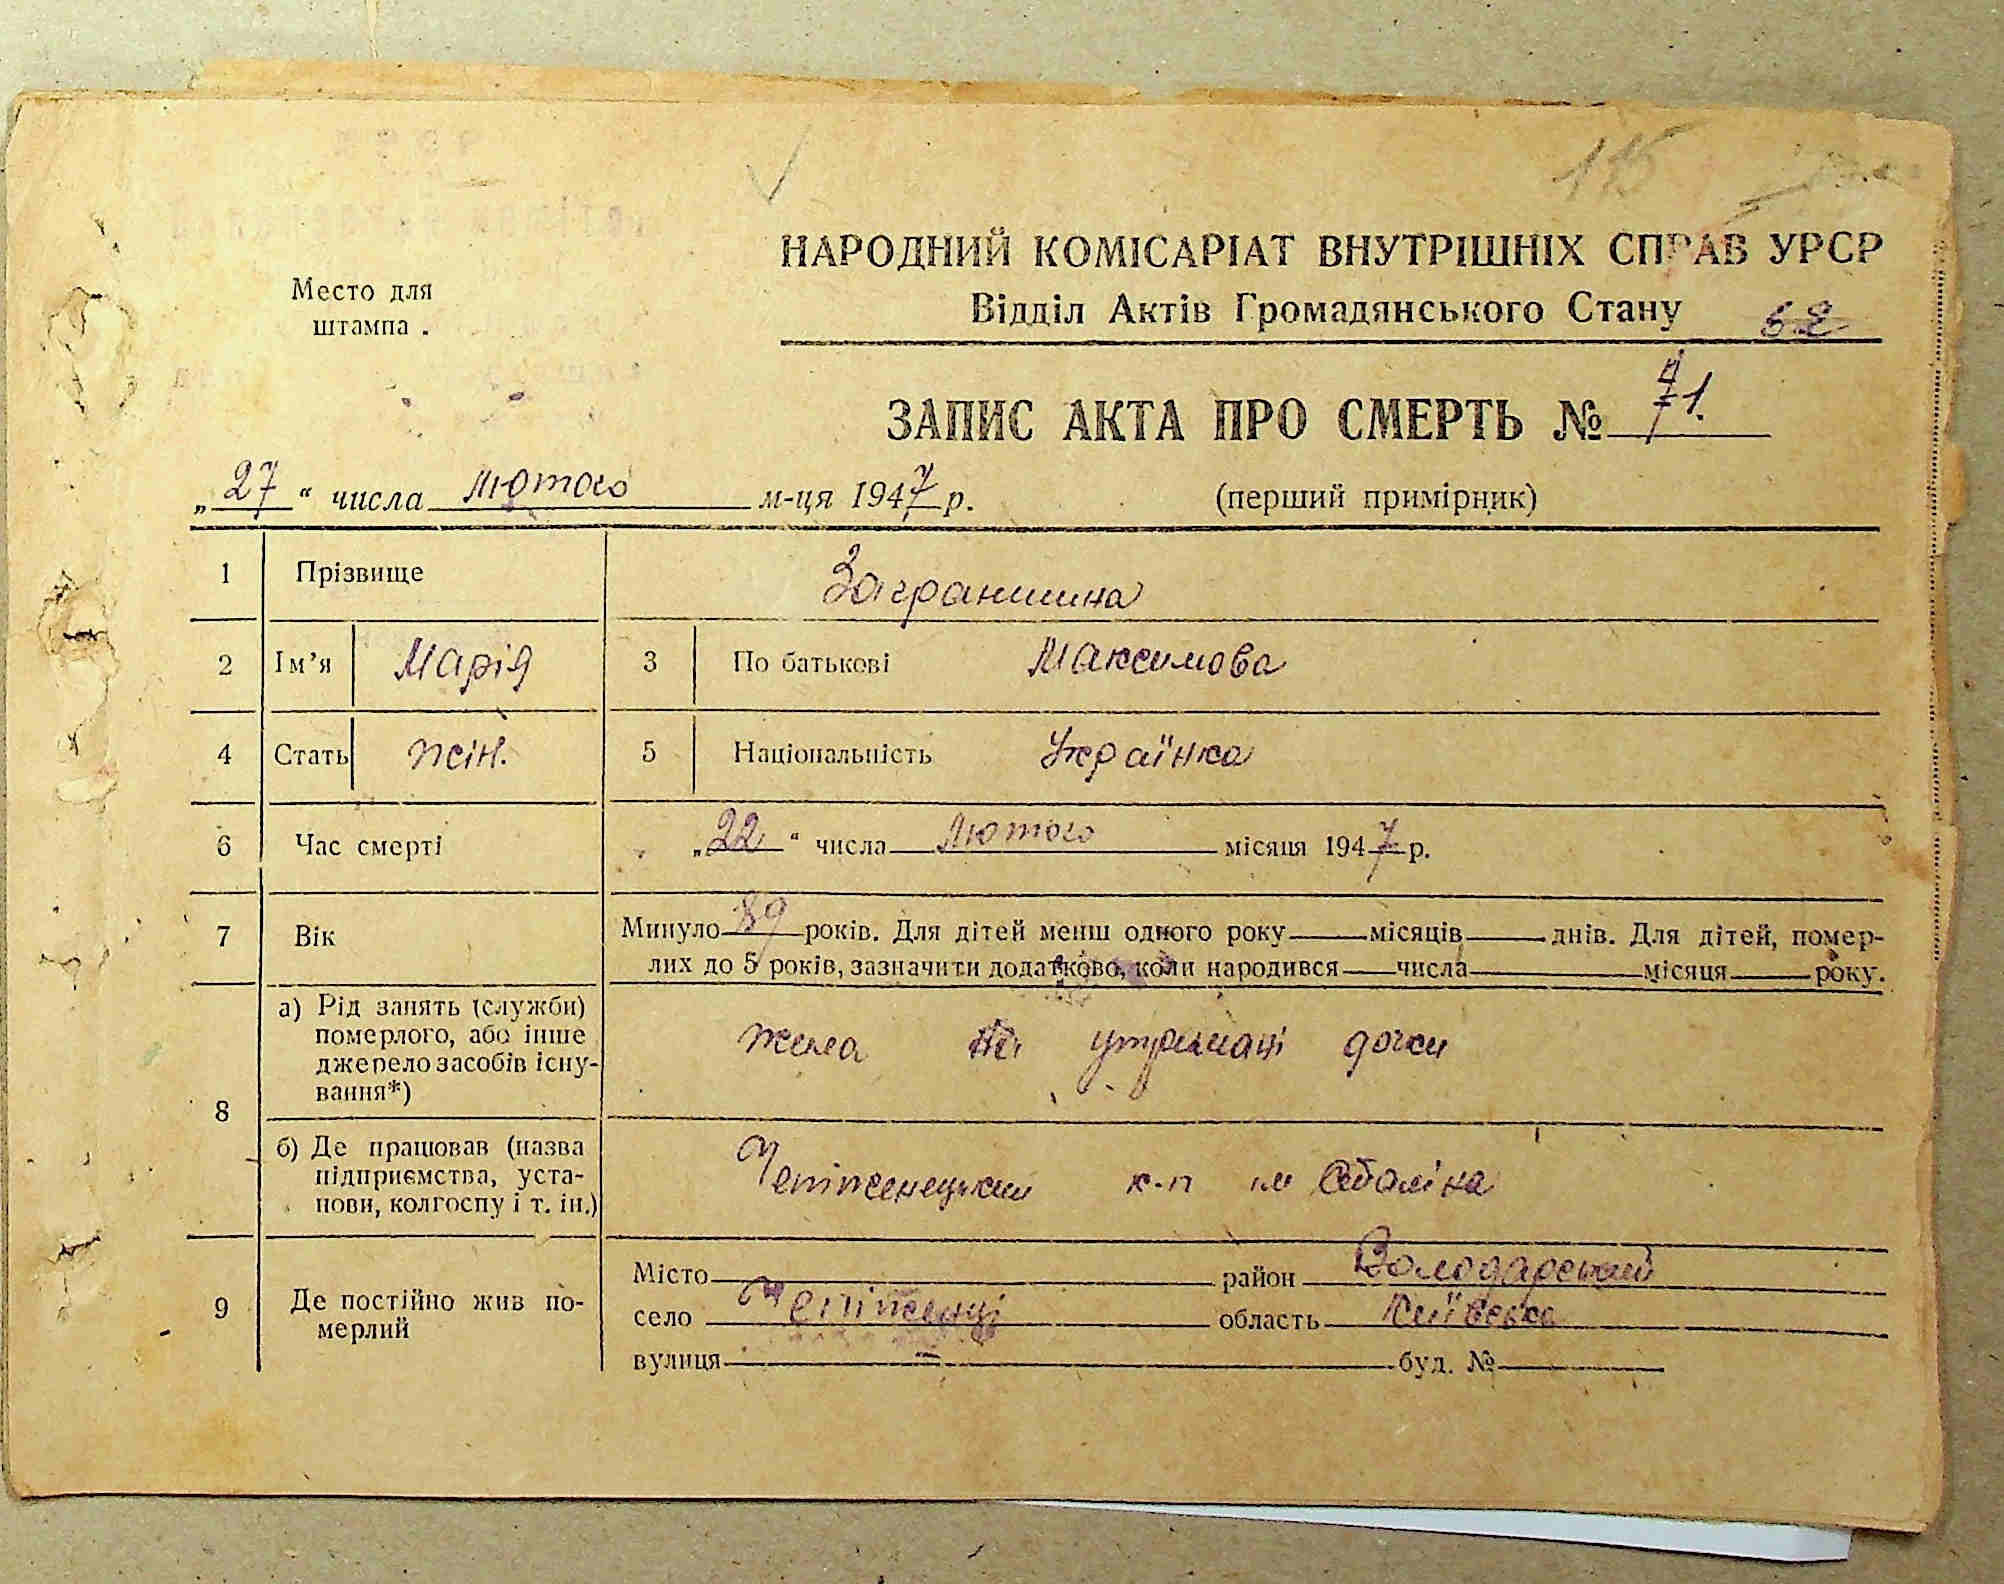 115
НАРОДНИЙ КОМІСАРІАТ ВНУТРІШНІХ СПРАВ УРСР
Место для
штампа.
Відділ Актів Громадянського Стану 62
ЗАПИС АКТА ПРО СМЕРТЬ № 71.
„27“ числа лютого м-ця 1947 р. (перший примірник)
1 Прізвище Заграничина
2 Ім’я Марія 3 По батькові Максимова
4 Стать жін. 5 Національність Українка
6 Час смерті „22“ числа Лютого місяця 1947 р.
7 Вік Минуло 89 років. Для дітей менш одного року місяців днів. Для дітей, помер-
лих до 5 років, зазначити додатково, коли народився числа місяця року.
8 а) Рід занять (служби)
померлого, або інше
джерело засобів існу-
вання*)
жила на утримані дочки
б) Де працював (назва
підприємства, уста-
нови, колгоспу і т. ін.)
Чепіженецький к-п ім Сталіна
9 Де постійно жив по-
мерлий
Місто район Володарський
село Чепіженці область Київська
вулиця — буд. №